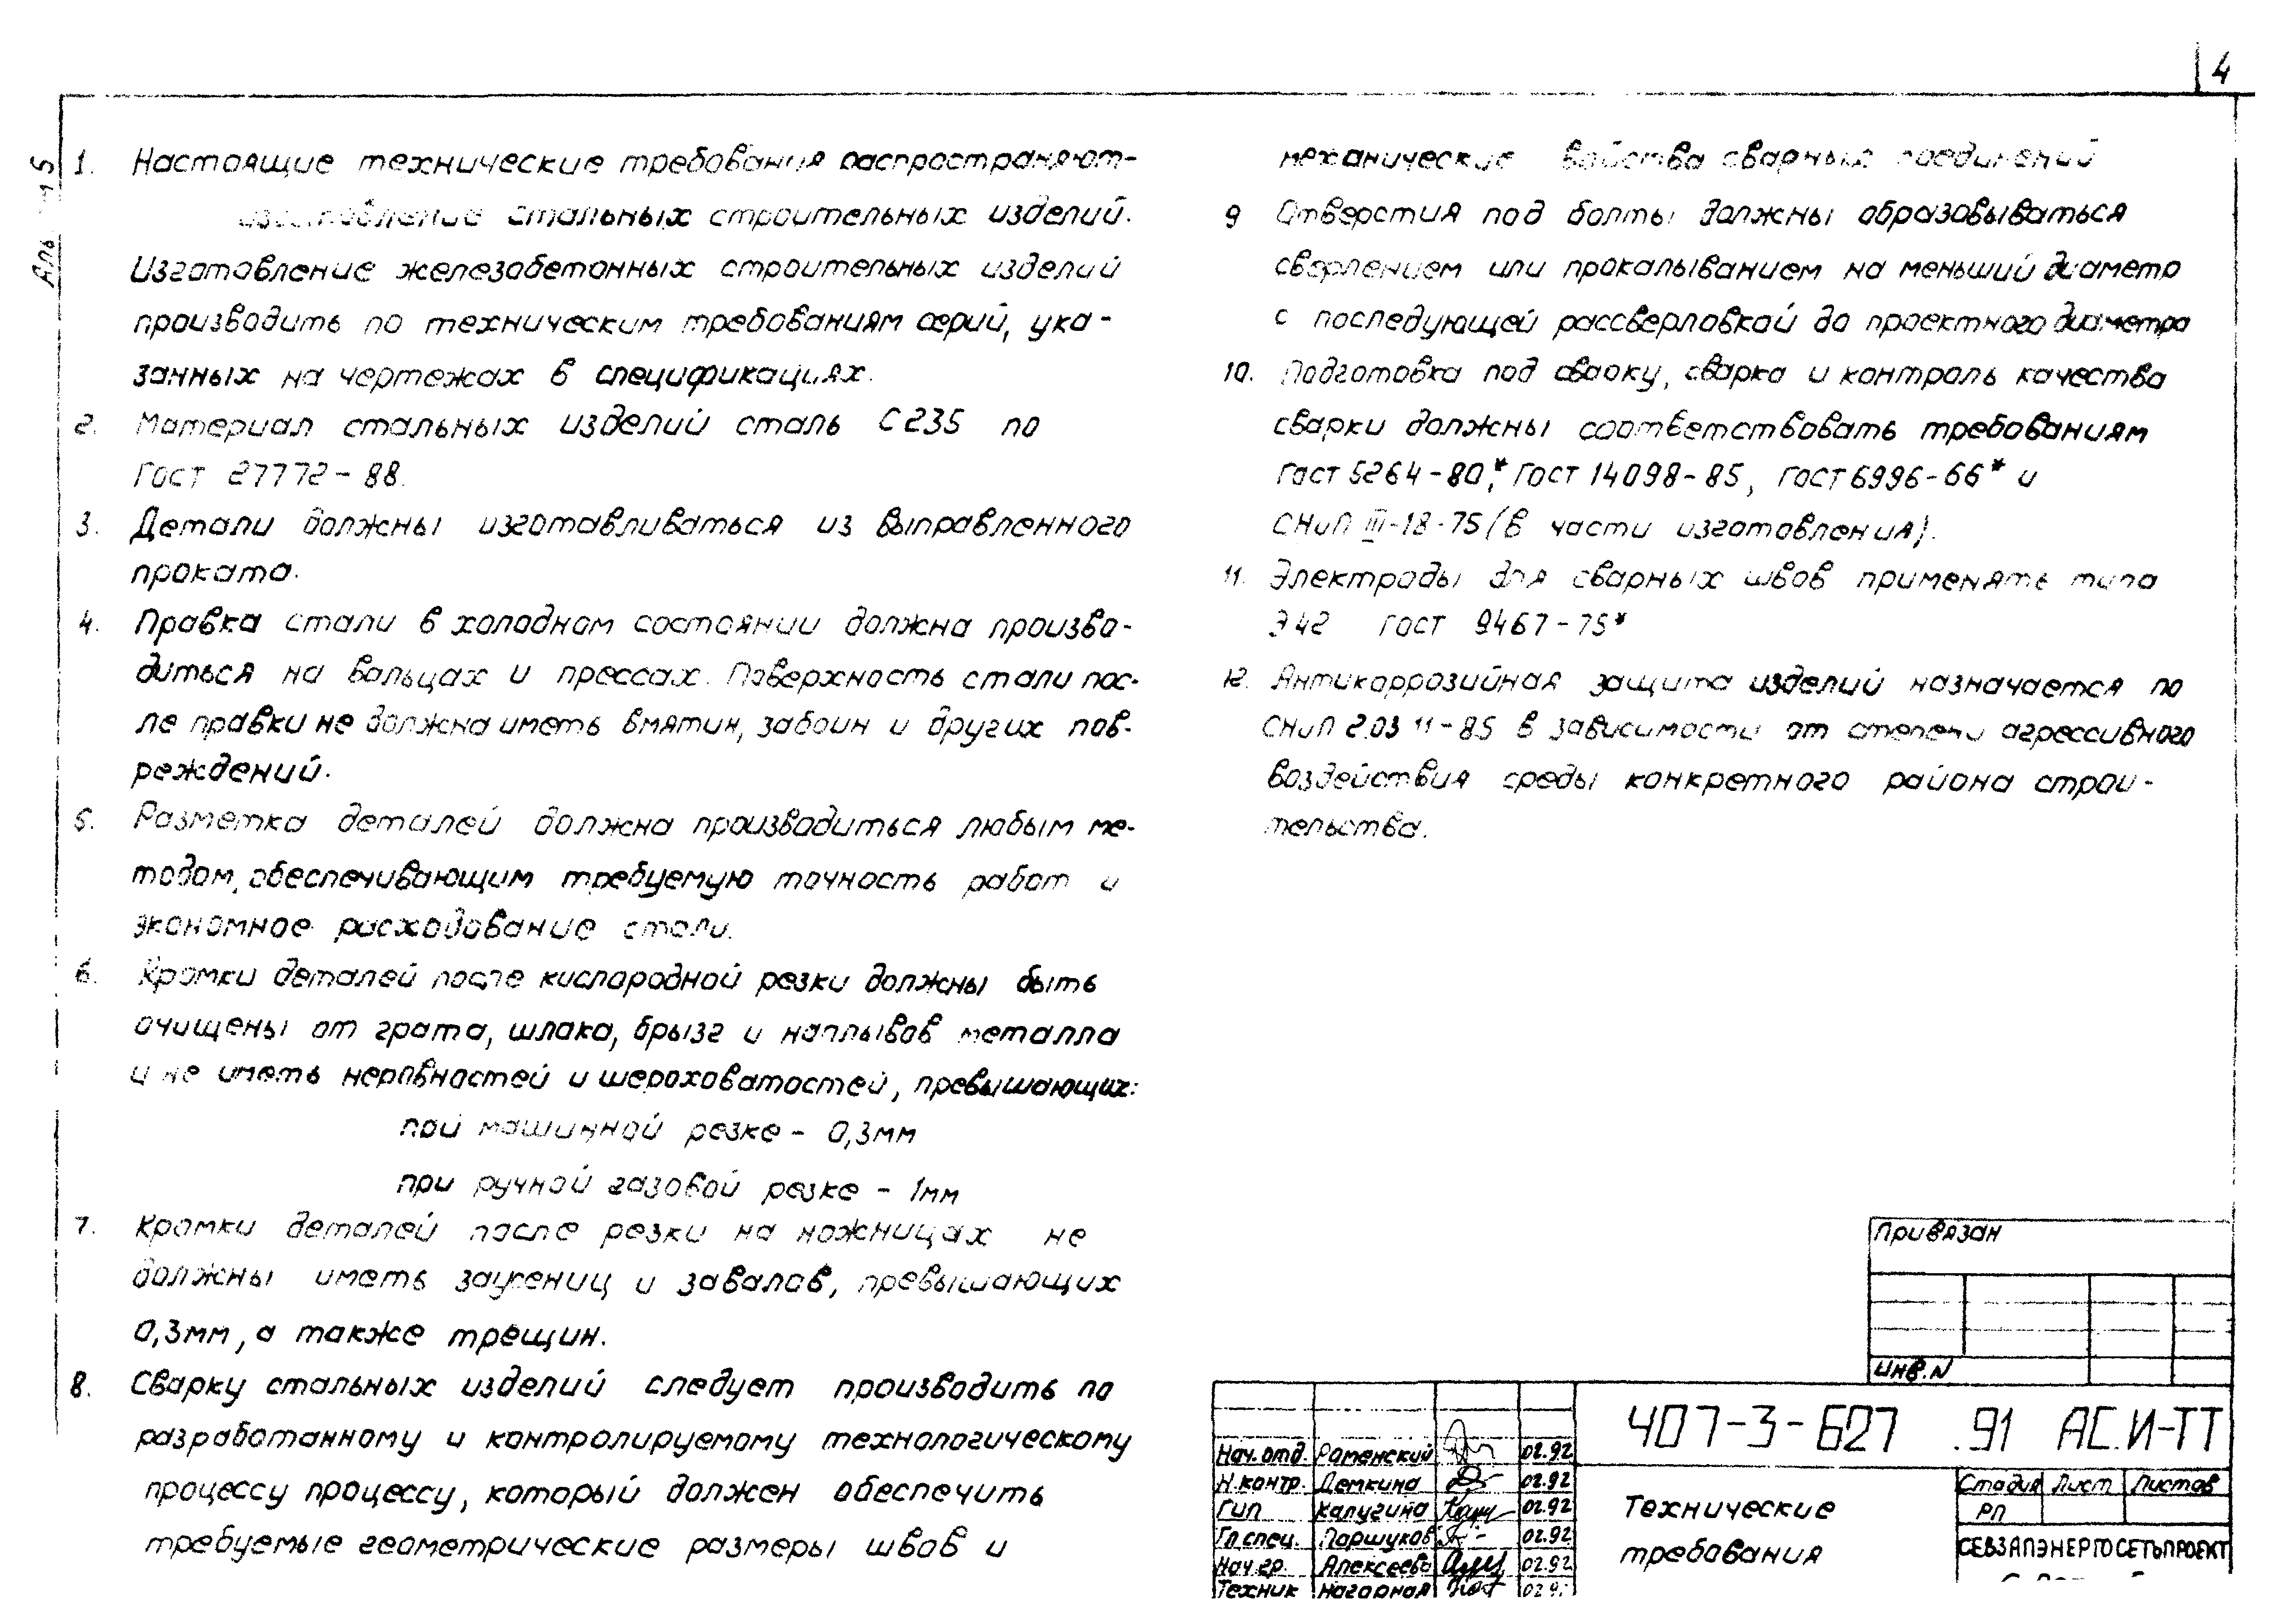 4
1. Настоящие технические требования распространяют-
изготовление стальных строительных изделий.
Изготовление железобетонных строительных изделий
производить по техническим требованиям серий, ука-
занных на чертежах в спецификациях.
2. Материал стальных изделий сталь С235 по
Гост 27772-88.
3. Детали должны изготавливаться из выправленного
проката.
4. Правка стали в холодном состоянии должна произво-
диться на вальцах и прессах. Поверхность стали пос-
ле правки не должна иметь вмятин, забоин и других пов-
реждений.
5. Разметка деталей должна производиться любым ме-
тодом, обеспечивающим требуемую точность работ и
экономное расходование стали.
6. Кромки деталей после кислородной резки должны быть
очищены от грата, шлака, брызг и наплывов металла
и не иметь неровностей и шероховатостей, превышающих:
при машинной резке - 0,3мм
при ручной газовой резке - 1мм
7. Кромки деталей после резки на ножницах не
должны иметь заусениц и завалов, превышающих
0,3мм, а также трещин.
8. Сварку стальных изделий следует производить по
разработанному и контролируемому технологическому
процессу процессу, который должен обеспечить
требуемые геометрические размеры швов и
механические войства сварных соединений
9 Отверстия под болты должны образовываться
сверлением или прокалыванием на меньший диаметр
с последующей рассверловкой до проектного диаметра
10. Подготовка под сварку, сварка и контроль качества
сварки должны соответствовать требованиям
Гост 5264-80*, Гост 14098-85, Гост 6996-66* и
СНиП III-18-75 (в части изготовления).
11. Электроды для сварных швов применять типа
Э42 Гост 9467-75*
12. Антикоррозийная защита изделий назначается по
СНиП 2.03 11-85 в зависимости от степени агрессивного
воздействия среды конкретного района строи-
тельства.
Привязан
Инв.N
407-3-627 .91 АС.И-ТТ
Нач.отд. Раменский 02.92
Н.контр. Демкина 02.92
Гип Калугина 02.92
Гл.спец. Паршуков 02.92
Нач.гр. Алексеева 02.92
Техник Нагорная 02.9
Технические
требования
Стадия Лист Листов
РП
СЕВЗАПЭНЕРГОСЕТЬПРОЕКТ